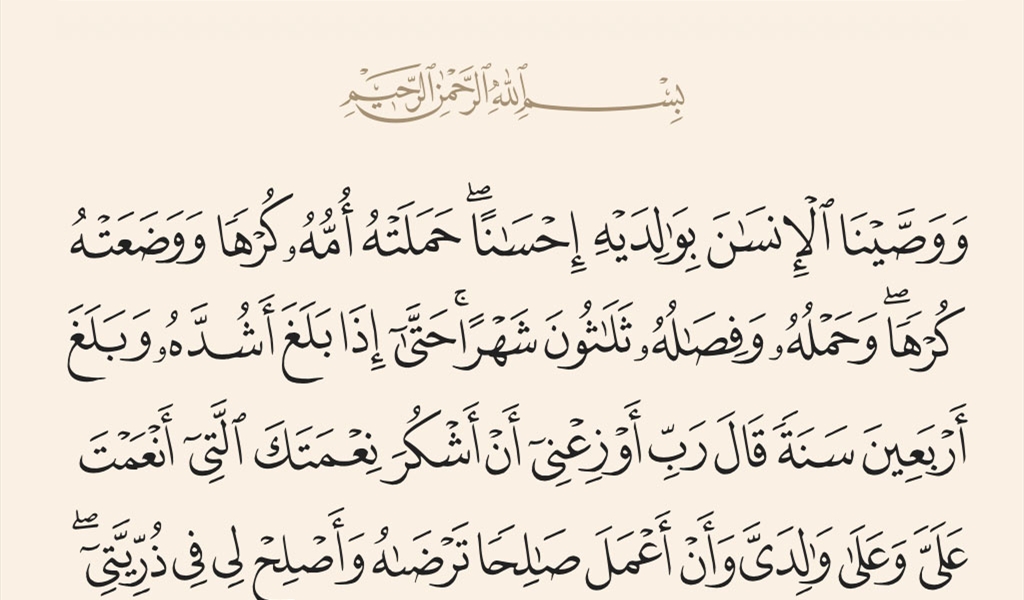 بِسْمِ ٱللَّهِ ٱلرَّحْمَٰنِ ٱلرَّحِيمِ
وَوَصَّيْنَا ٱلْإِنسَٰنَ بِوَٰلِدَيْهِ إِحْسَٰنًا ۖ حَمَلَتْهُ أُمُّهُۥ كُرْهًا وَوَضَعَتْهُ
كُرْهًا ۖ وَحَمْلُهُۥ وَفِصَٰلُهُۥ ثَلَٰثُونَ شَهْرًا ۚ حَتَّىٰٓ إِذَا بَلَغَ أَشُدَّهُۥ وَبَلَغَ
أَرْبَعِينَ سَنَةً قَالَ رَبِّ أَوْزِعْنِىٓ أَنْ أَشْكُرَ نِعْمَتَكَ ٱلَّتِىٓ أَنْعَمْتَ
عَلَىَّ وَعَلَىٰ وَٰلِدَىَّ وَأَنْ أَعْمَلَ صَٰلِحًا تَرْضَىٰهُ وَأَصْلِحْ لِى فِى ذُرِّيَّتِىٓ ۖ